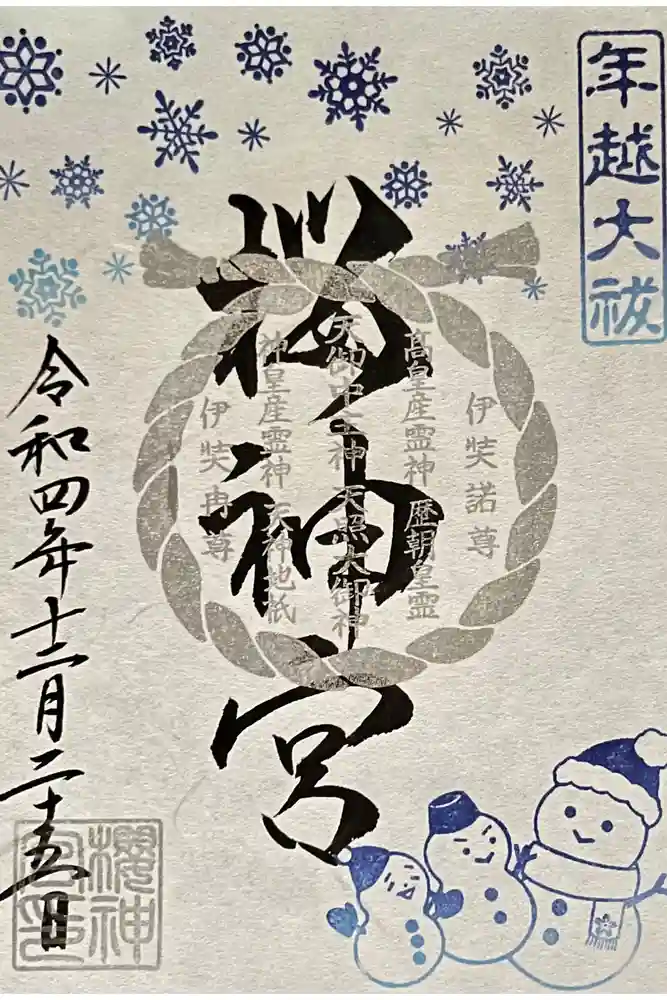 年越大祓
櫻神宮
伊奘諾尊
高皇産霊神 歴朝皇霊
天御中主神 天照大御神
神皇産霊神 天神地祇
伊奘冉尊
令和四年十二月二十五日
櫻神
宮印